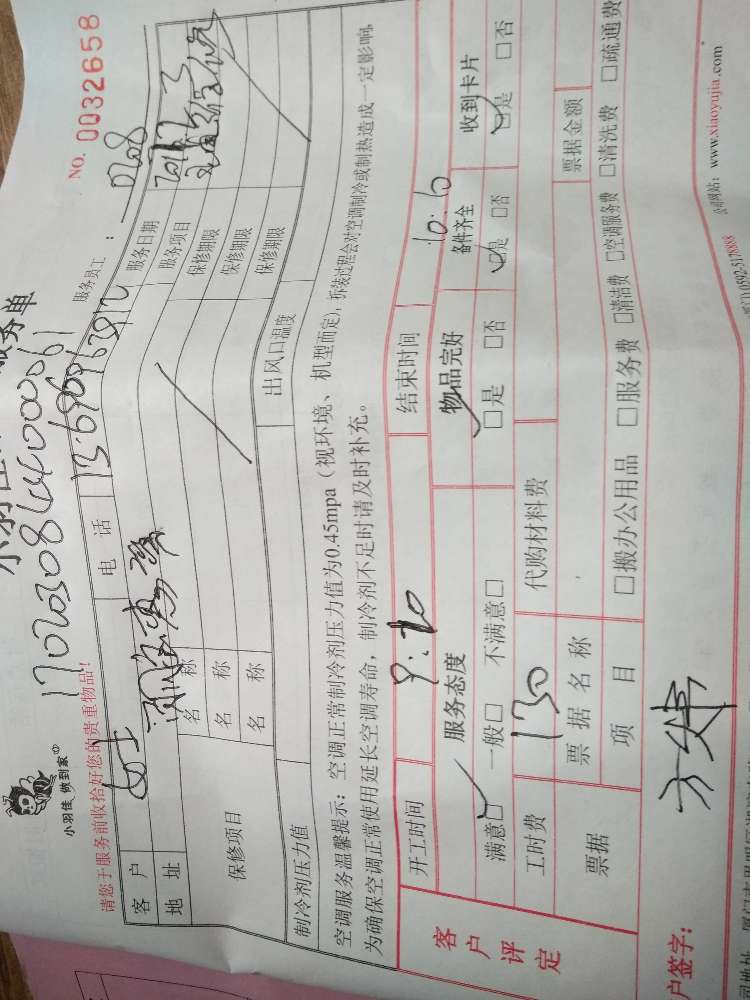 小羽佳 做到家
服务单
NO. 0032658
17020308164000061
服务员工： 0208
请您于服务前收拾好您的贵重物品！
客户 电话 服务日期
地址 服务项目
保修项目
名称 保修期限
名称 保修期限
名称 保修期限
制冷剂压力值 出风口温度
空调服务温馨提示：空调正常制冷剂压力值为0.45mpa（视环境、机型而定），拆装过程会对空调制冷或制热造成一定影响，
为确保空调正常使用延长空调寿命，制冷剂不足时请及时补充。
客户评定
开工时间 9:20 结束时间 10:10
服务态度 物品完好 备件齐全 收到卡片
满意□ 一般□ 不满意□ □是 □否 □是 □否 □是 □否
工时费 130 代购材料费
票据 票据名称 票据金额
项目 □搬办公用品 □服务费 □清洁费 □空调服务费 □清洗费 □疏通费
户签字：
公司网站：www.xiaoyujia.com
0592-5178888